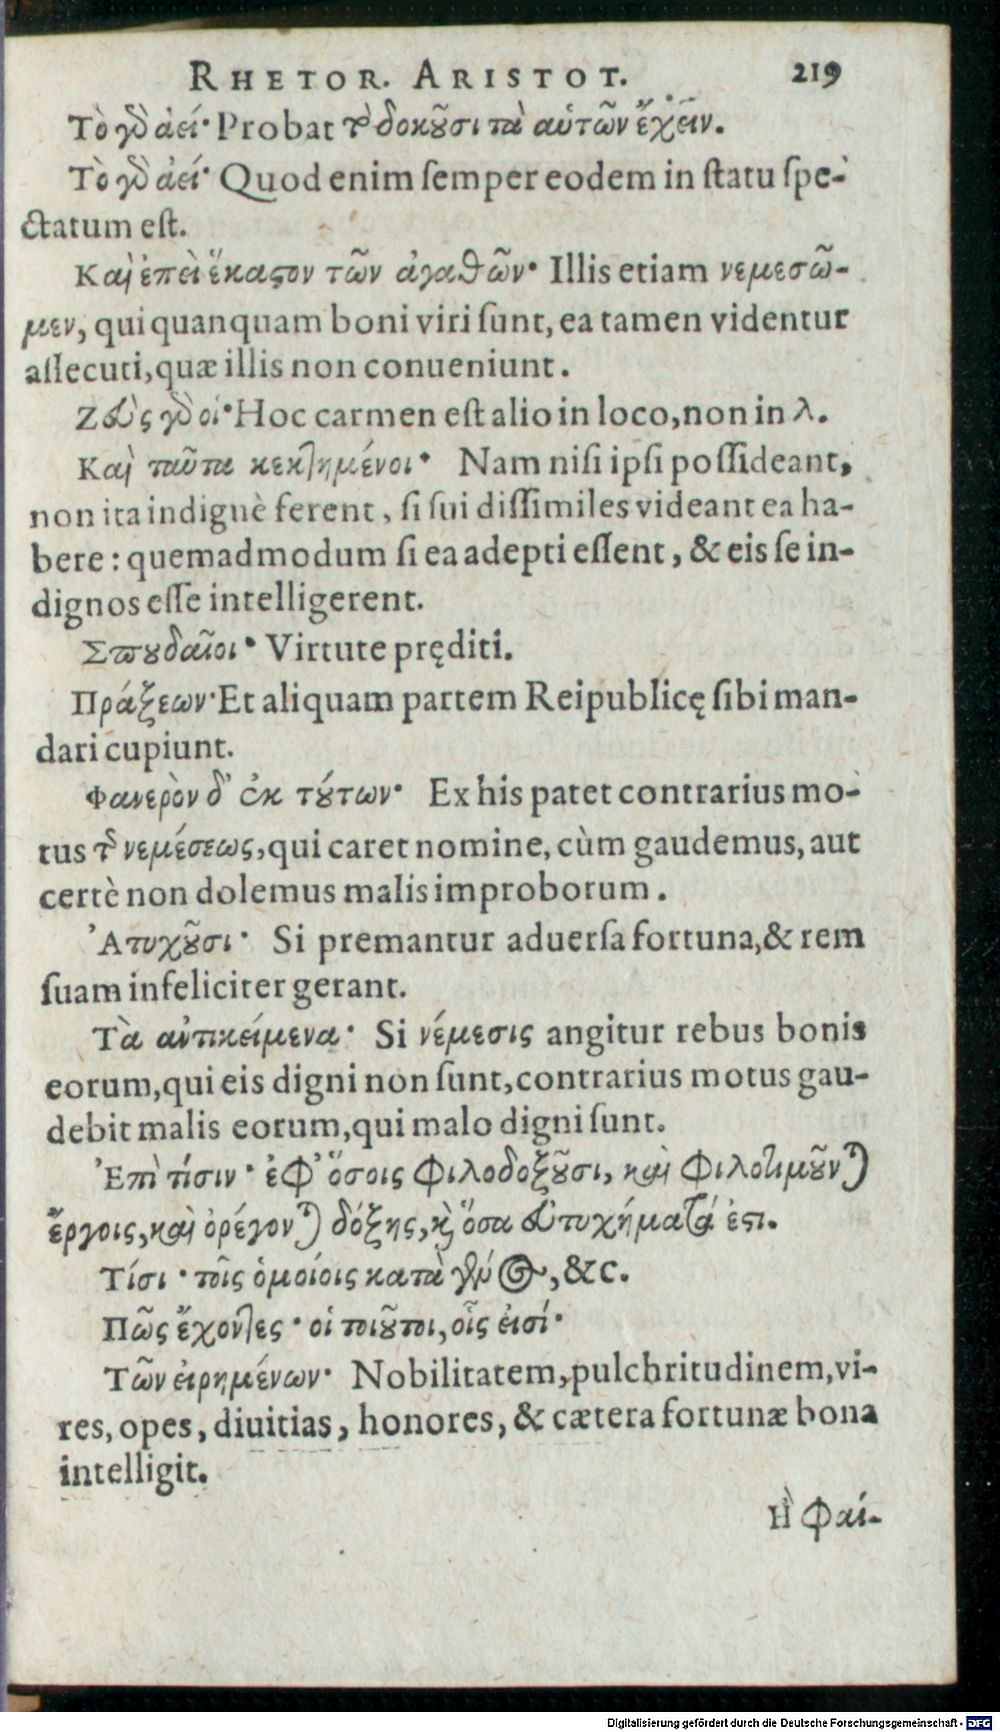 RHETOR. ARISTOT. 219
Τὸ γὸ ἀεί· Probat τὸ δοκοῦσι τὰ αὑτῶν ἔχειν.
Τὸ γὸ ἀεί· Quod enim ſemper eodem in ſtatu ſpe-
ctatum eſt.
Καὶ ἐπεὶ ἕκαστον τῶν ἀγαθῶν· Illis etiam νεμεσῶ-
μεν, qui quanquam boni viri ſunt, ea tamen videntur
aſſecuti, quæ illis non conueniunt.
Ζεὺς γὸ οἱ· Hoc carmen eſt alio in loco, non in λ.
Καὶ ταῦτα κεκτημένοι· Nam niſi ipſi poſſideant,
non ita indignè ferent, ſi ſui diſſimiles videant ea ha-
bere: quemadmodum ſi ea adepti eſſent, & eis ſe in-
dignos eſſe intelligerent.
Σπουδαῖοι· Virtute pręditi.
Πράξεων· Et aliquam partem Reipublicę ſibi man-
dari cupiunt.
Φανερὸν δ᾽ ἐκ τούτων· Ex his patet contrarius mo-
tus τῆς νεμέσεως, qui caret nomine, cùm gaudemus, aut
certè non dolemus malis improborum.
Ἀτυχοῦσι· Si premantur aduerſa fortuna, & rem
ſuam infeliciter gerant.
Τὰ ἀντικείμενα· Si νέμεσις angitur rebus bonis
eorum, qui eis digni non ſunt, contrarius motus gau-
debit malis eorum, qui malo digni ſunt.
Ἐπὶ τίσιν· ἐφ᾽ ὅσοις φιλοδοξοῦσι, καὶ φιλοτιμοῦνται
ἔργοις, καὶ ὀρέγονται δόξης, καὶ ὅσα εὐτυχήματά ἐστι.
Τίσι· τοῖς ὁμοίοις κατὰ γένος, &c.
Πῶς ἔχοντες· οἱ τοιοῦτοι, οἷς εἰσί·
Τῶν εἰρημένων· Nobilitatem, pulchritudinem, vi-
res, opes, diuitias, honores, & cætera fortunæ bona
intelligit.
Ἢ φαί-
Digitalisierung gefördert durch die Deutsche Forschungsgemeinschaft - DFG